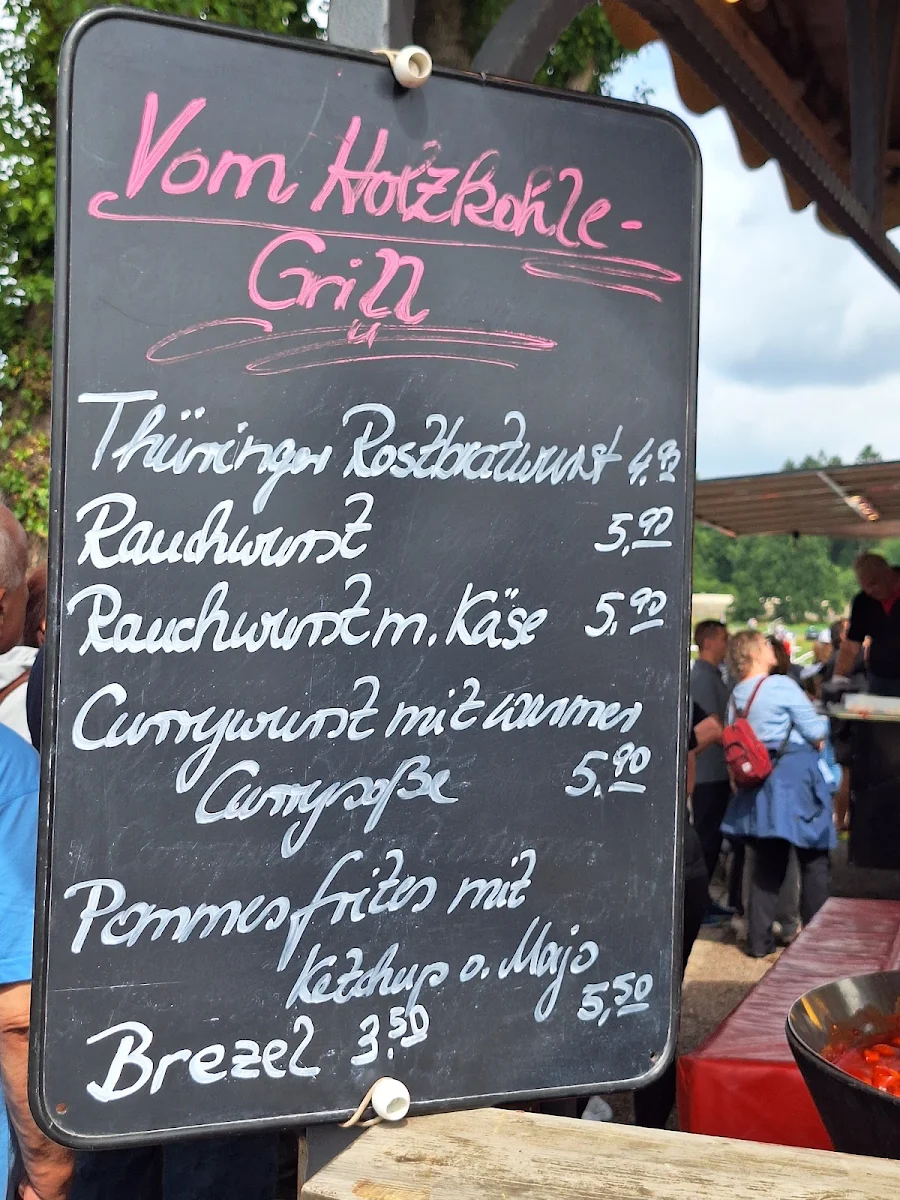 Vom Holzkohle-
Grill
Thüringer Rostbratwurst 4,90
Rauchwurst 5,90
Rauchwurst m. Käse 5,90
Currywurst mit warmer
Currysoße 5,90
Pommes frites mit
Ketchup o. Majo
5,50
Brezel 3,50